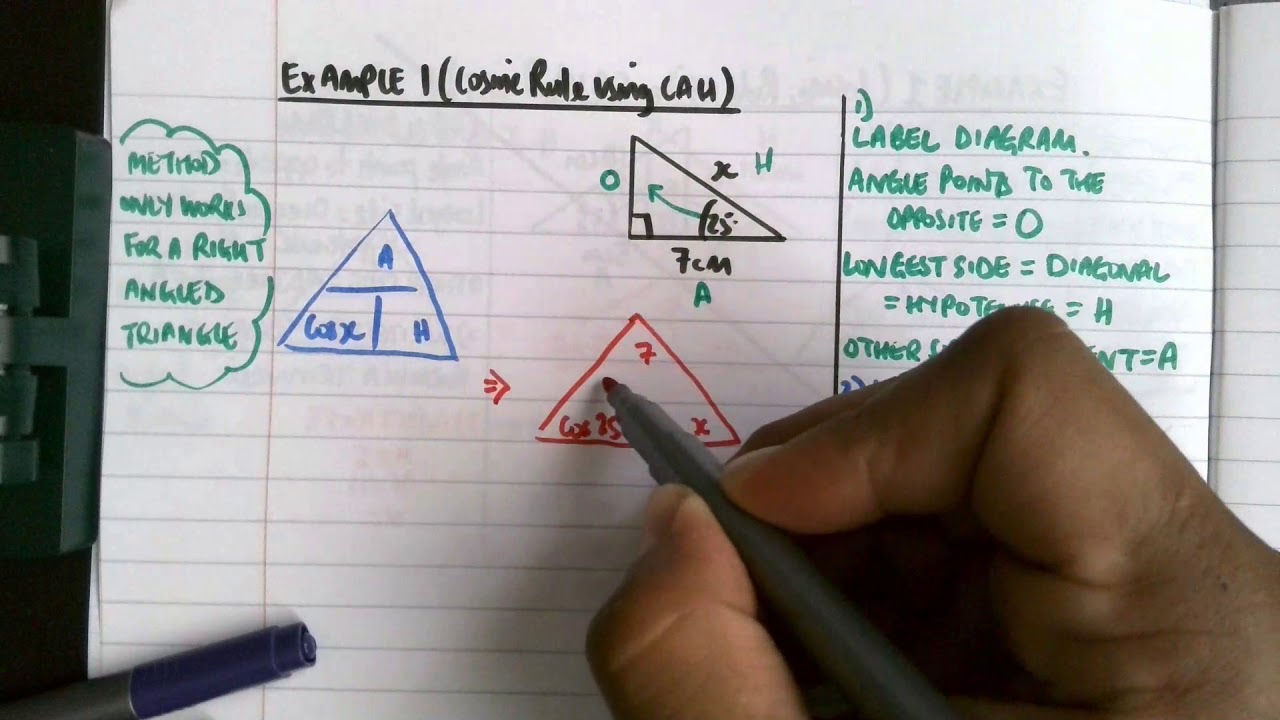 EXAMPLE 1 (Cosine Rule using CAH)
METHOD
ONLY WORKS
FOR A RIGHT
ANGLED
TRIANGLE
A
Cosx H
O
x H
25°
7cm
A
⇒
7
Cos 25
x
1)
LABEL DIAGRAM.
ANGLE POINTS TO THE
OPPOSITE = O
LONGEST SIDE = DIAGONAL
= = H
OTHER =A
2)